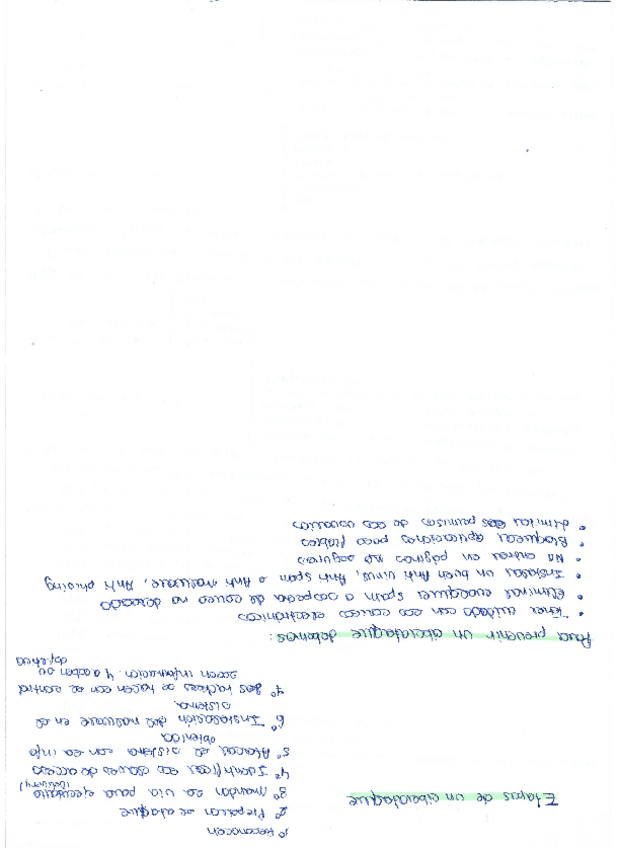 1º Reconocen
2º Preparan el ataque
3º Mandan la vía para ejecutarlo
(Delivery)
Etapas de un ciberataque
4º Identificar las claves de acceso
5º Atacar el sistema con la info
obtenida
6º Instalación del malware en el
sistema
7º Los hackers se hacen con el control
sacan información. Y acaban su
objetivo
Para prevenir un ciberataque debemos:
• Tener cuidado con los correos electrónicos
• Eliminar cualquier spam o sospecha de correo no deseado
• Instalar un buen Anti virus, Anti spam o Anti malware, Anti phising
• No entrar en páginas no seguras
• Bloquear aplicaciones poco fiables
• Limitar los permisos de los usuarios